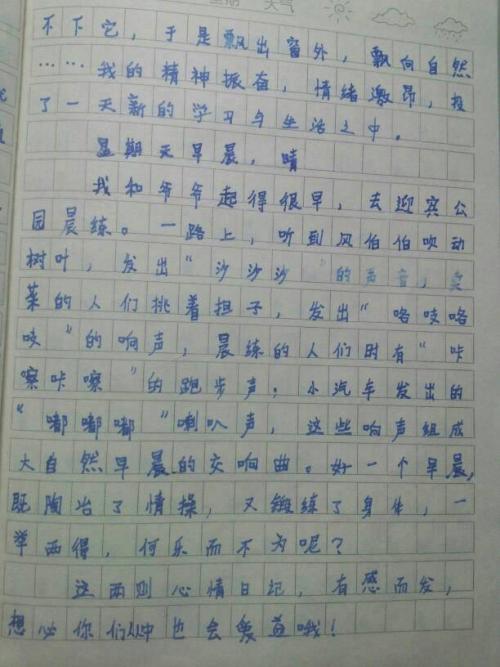 星期 天气
不下它，于是飘出窗外，飘向自然
……我的精神振奋，情绪激昂，投
了一天新的学习与生活之中。
星期天早晨，晴
我和爷爷起得很早，去迎宾公
园晨练。一路上，听到风伯伯吹动
树叶，发出“沙沙沙”的声音，卖
菜的人们挑着担子，发出“咯吱咯
吱”的响声，晨练的人们时有“咔
嚓咔嚓”的跑步声；小汽车发出的
“嘟嘟嘟”喇叭声，这些响声组成
大自然早晨的交响曲。好一个早晨，
既陶冶了情操，又锻练了身体，一
举两得，何乐而不为呢？
这两则心情日记，有感而发，
想必你们从中也会受益哦！